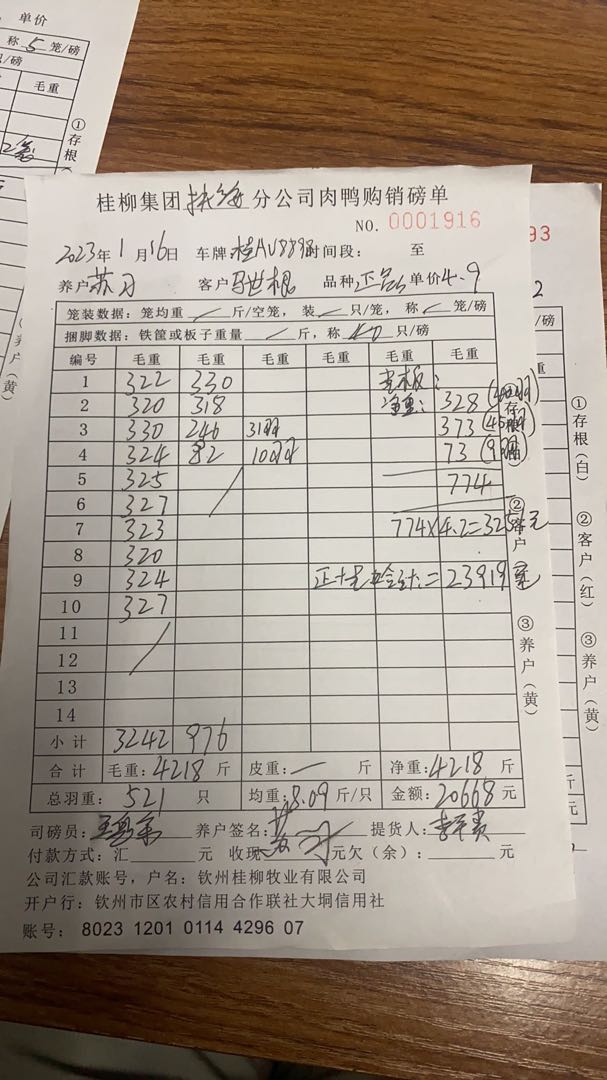 单价
称 5 笼/磅
只/磅
毛重
①存根(白)
(黄)
93
2
/磅
重
①存根(白)
②客户(红)
③养户(黄)
斤
元
桂柳集团 分公司肉鸭购销磅单
NO. 0001916
2023年1月16日 车牌:桂AV8898 时间段: 至
养户 苏习 客户 马世根 品种 正品 单价4.9
笼装数据: 笼均重 / 斤/空笼, 装 / 只/笼, 称 / 笼/磅
捆脚数据: 铁筐或板子重量 / 斤, 称 40 只/磅
编号 毛重 毛重 毛重 毛重 毛重 毛重
1 322 330 老板:
2 320 318 净重: 328
3 330 246 31羽 373
4 324 82 10羽 73
5 325 774
6 327
7 323 774×4.2=3251元
8 320
9 324 23919元
10 327
11
12
13
14
小计 3242 976
合计 毛重:4218斤 皮重:— 斤 净重:4218斤
总羽重: 521 只 均重:8.09斤/只 金额:20668元
司磅员: 养户签名: 苏习 提货人:
付款方式: 汇 元 收现 元 欠(余): 元
公司汇款账号, 户名: 钦州桂柳牧业有限公司
开户行: 钦州市区农村信用合作联社大垌信用社
账号: 8023 1201 0114 4296 07
①存根
②客户
③养户(黄)